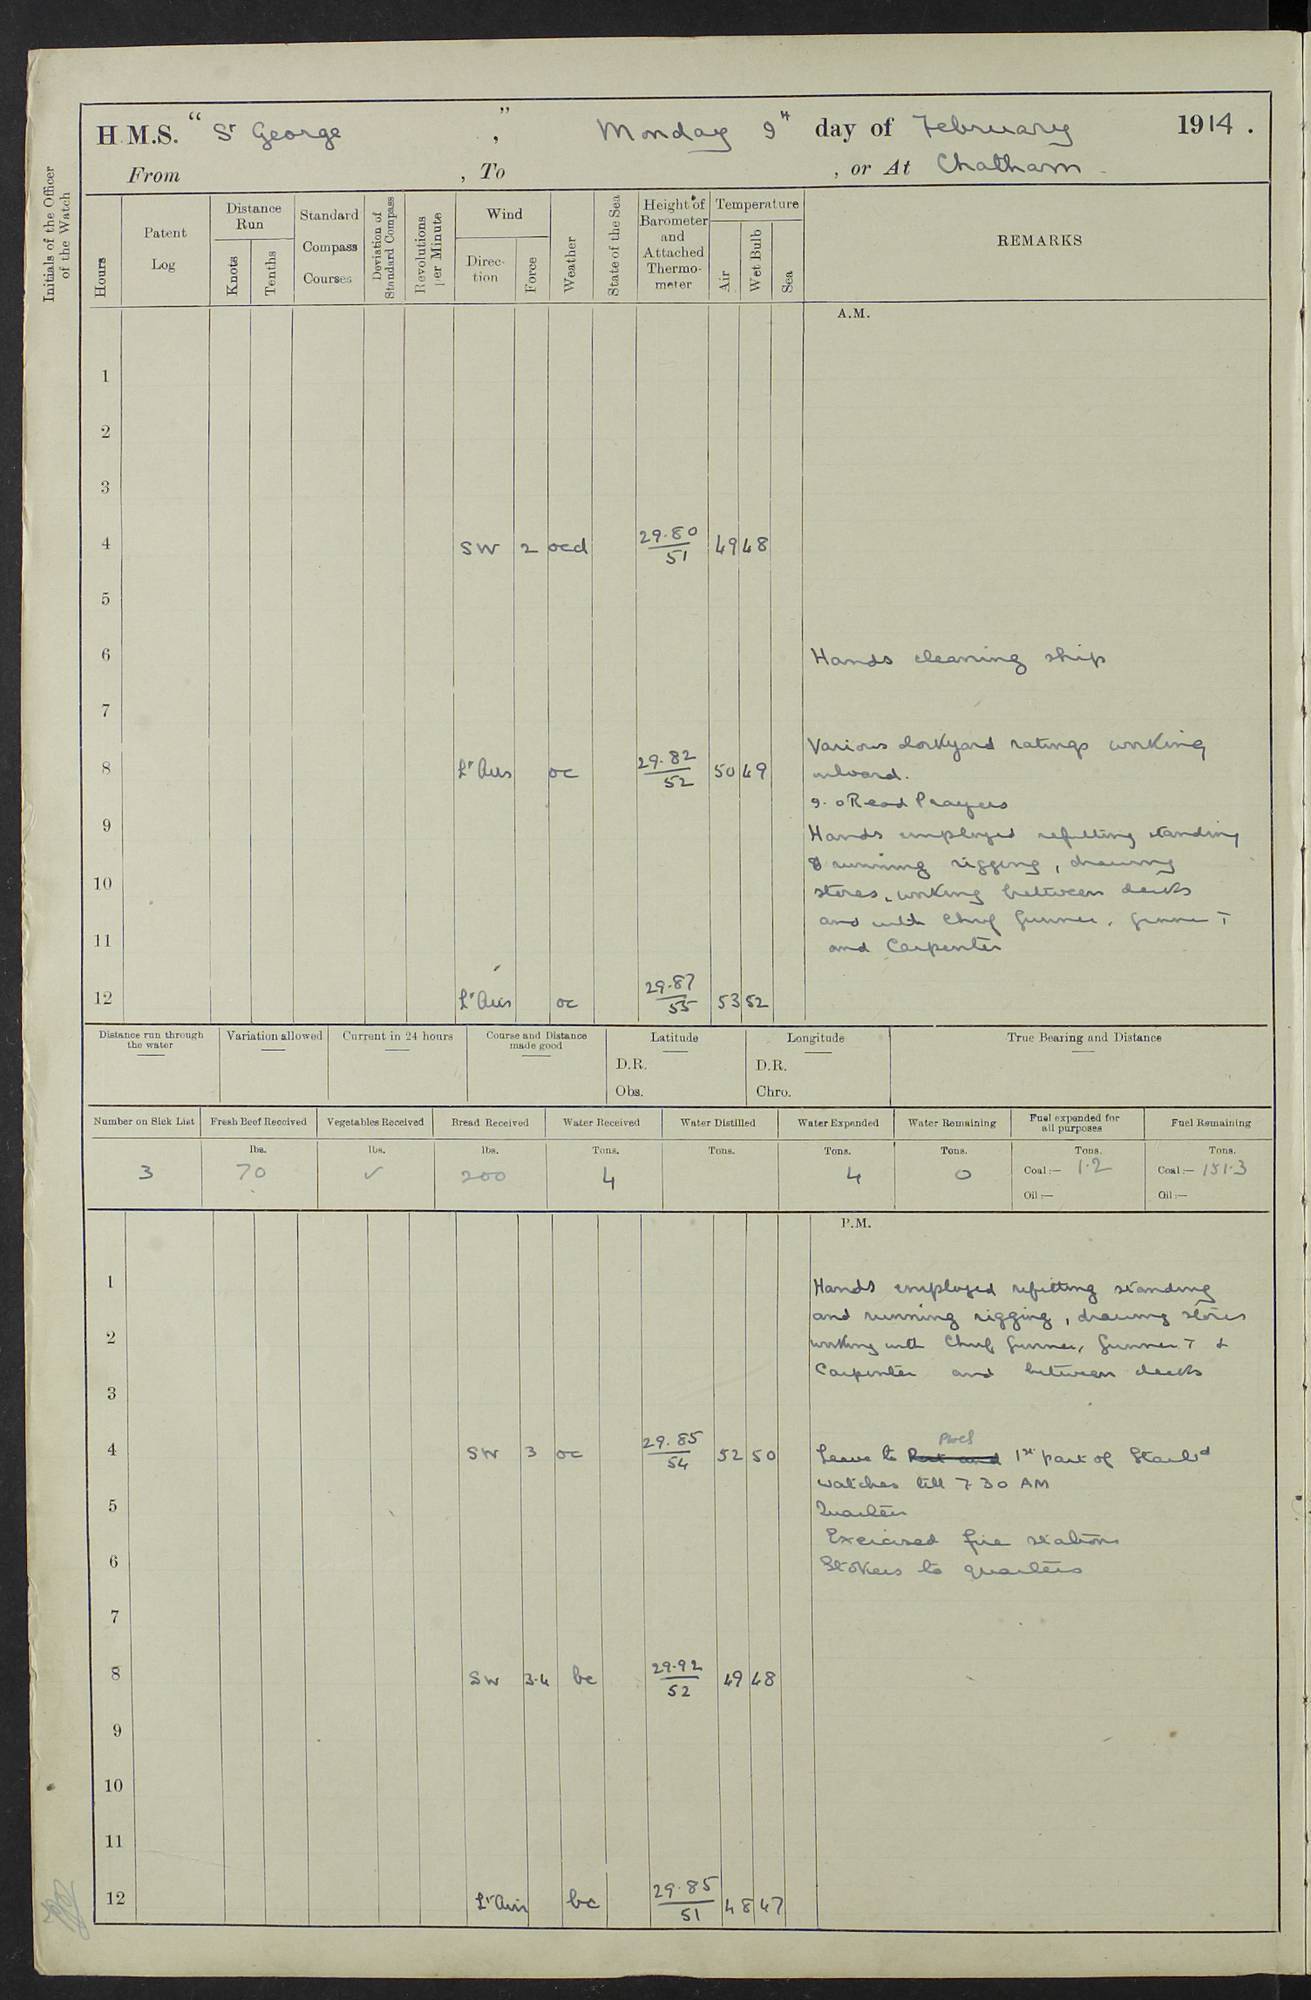 H.M.S. “ St George ” , Monday 9th day of February 1914 .
From , To , or At Chatham
Initials of the Officer of the Watch
Hours
Patent Log
Distance Run
Knots
Tenths
Standard Compass Courses
Deviation of Standard Compass
Revolutions per Minute
Wind
Direction
Force
Weather
State of the Sea
Height of Barometer and Attached Thermometer
Temperature
Air
Wet Bulb
Sea
REMARKS
A.M.
1
2
3
4 SW 2 ocd 29.80/51 49 48
5
6 Hands cleaning ship
7
Various dockyard ratings working
8 Lt Airs oc 29.82/52 50 49 inboard.
9.0 Read Prayers
9 Hands employed refitting standing
& running rigging, drawing
10 stores, working between decks
and with Chief Gunner, Gunner T
11 and Carpenter
12 Lt Airs oc 29.87/53 53 52
Distance run through the water
Variation allowed
Current in 24 hours
Course and Distance made good
Latitude
D.R.
Obs.
Longitude
D.R.
Chro.
True Bearing and Distance
Number on Sick List
Fresh Beef Received
Vegetables Received
Bread Received
Water Received
Water Distilled
Water Expended
Water Remaining
Fuel expended for all purposes
Fuel Remaining
lbs. lbs. lbs. Tons. Tons. Tons. Tons. Tons. Tons.
3 70 ✓ 200 4 4 0 Coal:— 1.2 Coal:— 151.3
Oil:— Oil:—
P.M.
1 Hands employed refitting standing
and running rigging, drawing stores
2 working with Chief Gunner, Gunner T &
Carpenter and between decks
3
4 SW 3 oc 29.85/54 52 50 Leave to Port and 1st part of Starbd
watches till 7.30 AM
5 Quarters
Exercised fire stations
6 Stokers to quarters
7
8 SW 3.4 bc 29.92/52 49 48
9
10
11
12 Lt Airs bc 29.85/51 48 47